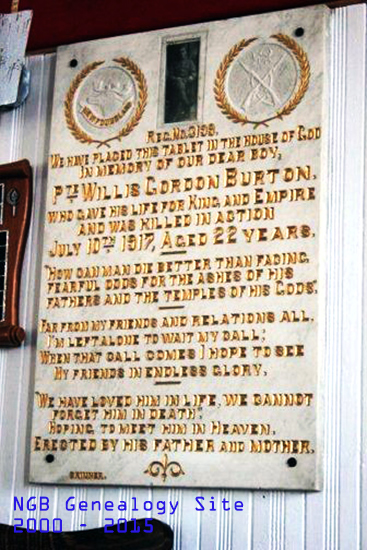 NEWFOUNDLAND
REG. NO 3198.
WE HAVE PLACED THIS TABLET IN THE HOUSE OF GOD
IN MEMORY OF OUR DEAR BOY,
PTE WILLIS GORDON BURTON,
WHO GAVE HIS LIFE FOR KING AND EMPIRE
AND WAS KILLED IN ACTION
JULY 10TH 1917, AGED 22 YEARS.
"HOW CAN MAN DIE BETTER THAN FACING
FEARFUL ODDS FOR THE ASHES OF HIS
FATHERS AND THE TEMPLES OF HIS GODS".
FAR FROM MY FRIENDS AND RELATIONS ALL,
I'M LEFT ALONE TO WAIT MY CALL;
WHEN THAT CALL COMES I HOPE TO SEE
MY FRIENDS IN ENDLESS GLORY.
"WE HAVE LOVED HIM IN LIFE, WE CANNOT
FORGET HIM IN DEATH";
HOPING, TO MEET HIM IN HEAVEN.
ERECTED BY HIS FATHER AND MOTHER.
SKINNER.
NGB Genealogy Site
2000 - 2015